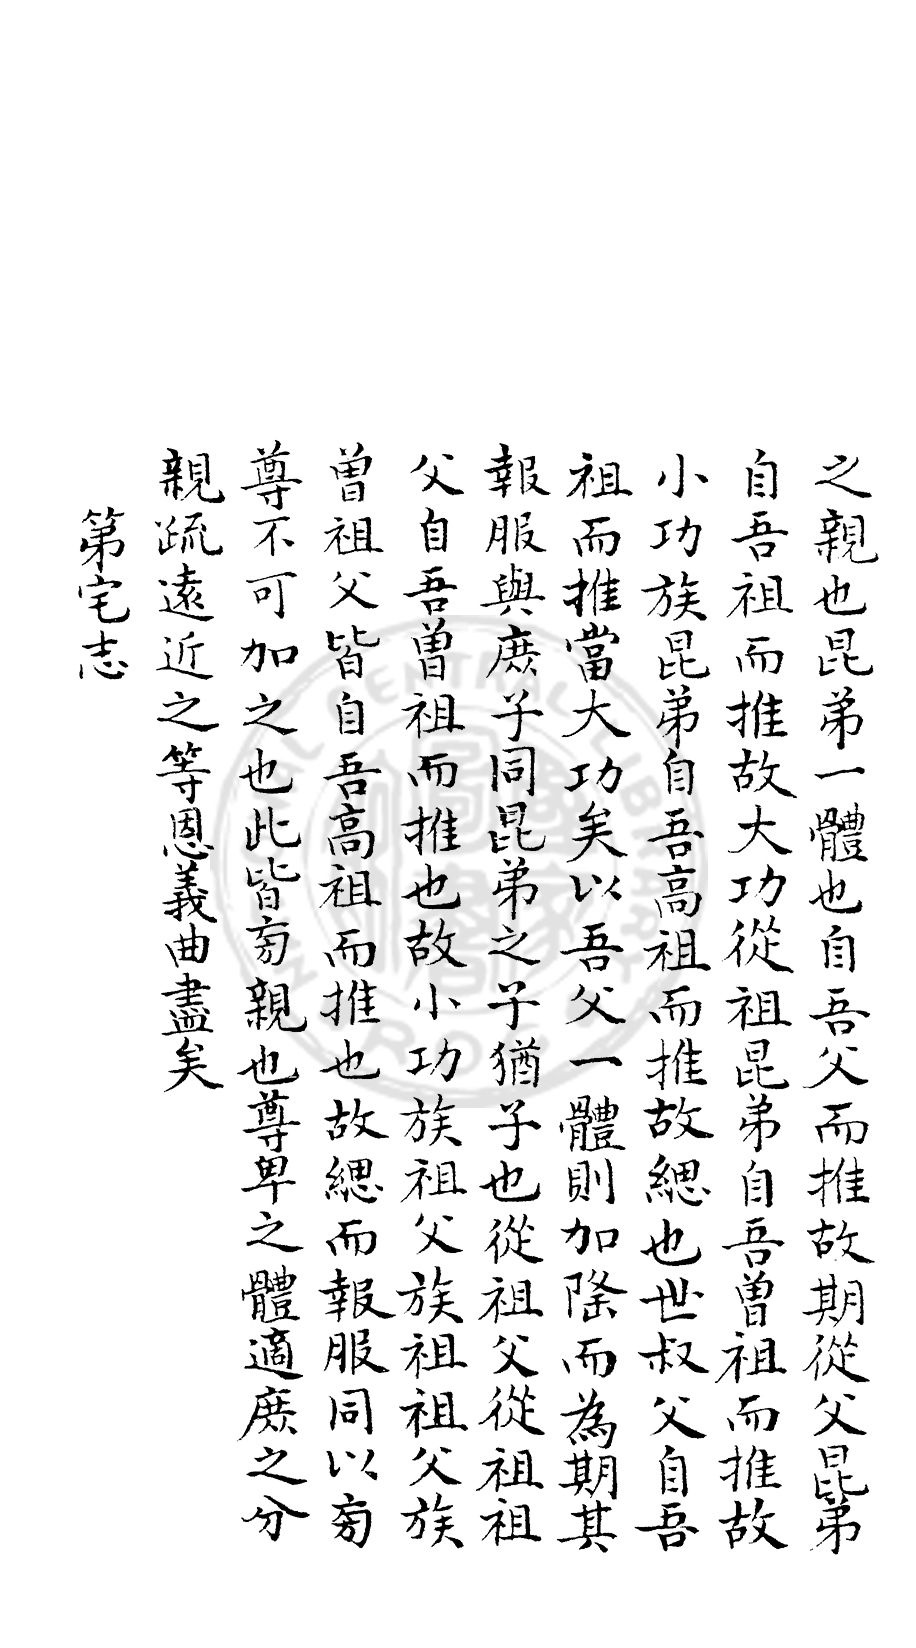 之親也昆弟一體也自吾父而推故期從父昆弟
自吾祖而推故大功從祖昆弟自吾曾祖而推故
小功族昆弟自吾高祖而推故緦也世叔父自吾
祖而推當大功矣以吾父一體則加隆而為期其
報服與庶子同昆弟之子猶子也從祖父從祖祖
父自吾曾祖而推也故小功族祖父族祖祖父族
曾祖父皆自吾高祖而推也故緦而報服同以旁
尊不可加之也此皆旁親也尊卑之體適庶之分
親疏遠近之等恩義曲盡矣
第宅志